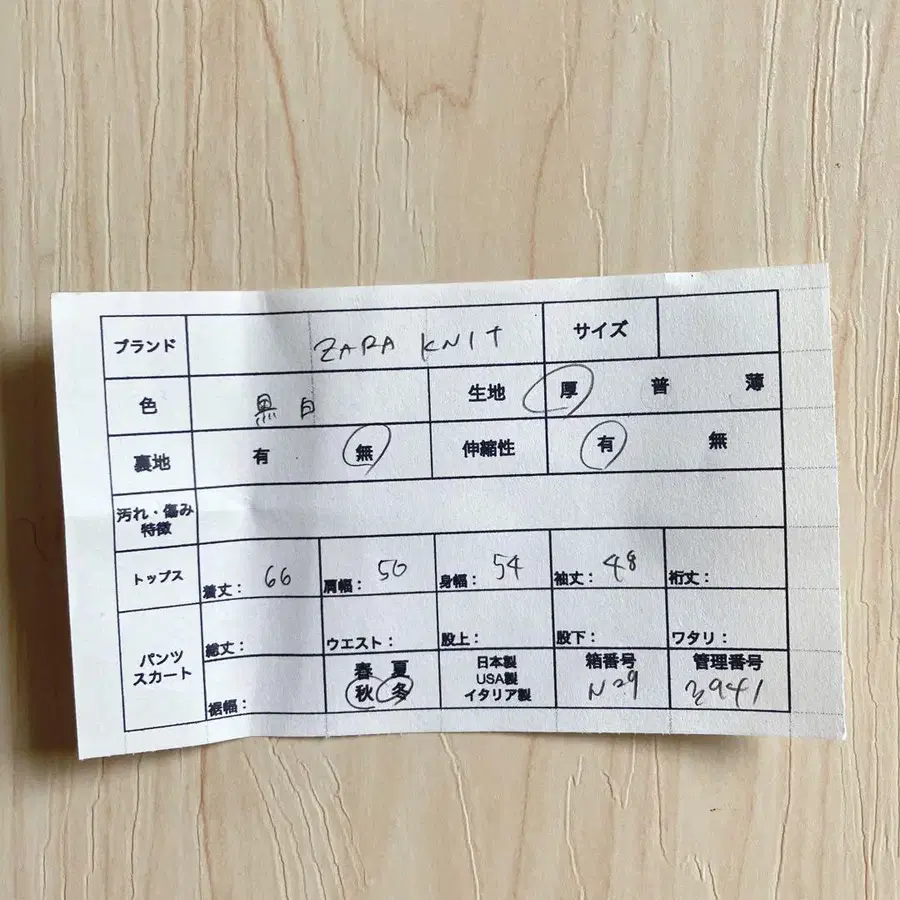 ブランド ZARA KNIT サイズ
色 黒 白 生地 厚 普 薄
裏地 有 無 伸縮性 有 無
汚れ・傷み
特徴
トップス 着丈: 66 肩幅: 50 身幅: 54 袖丈: 48 裄丈:
パンツ
スカート
総丈: ウエスト: 股上: 股下: ワタリ:
裾幅:
春 夏
秋 冬
日本製
USA製
イタリア製
箱番号
N29
管理番号
3941